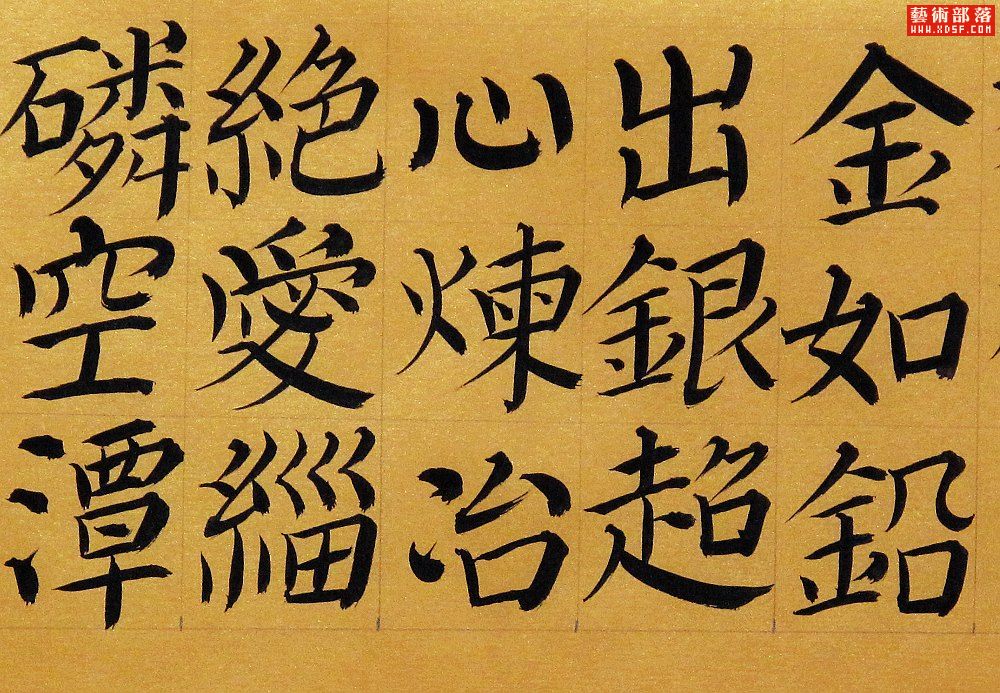 金如鉛
出銀超
心煉冶
絶愛緇
磷空潭
藝術部落
WWW.XDSF.COM